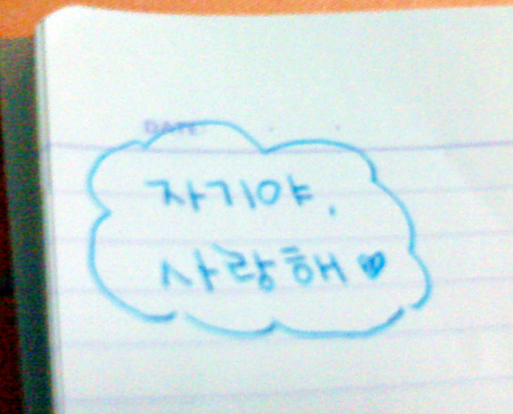 DATE:
자기야,
사랑해♥